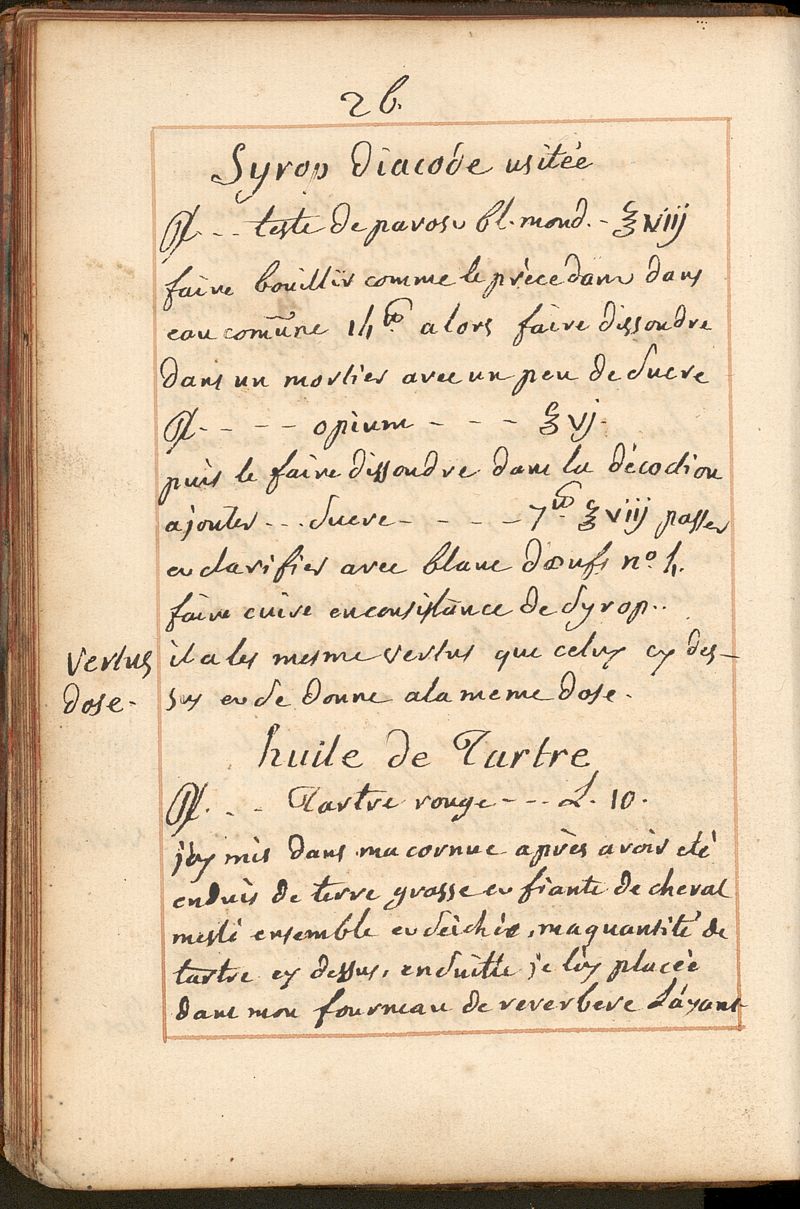 26.
Syrop diacode usitée
℞ - - teste de pavos bl. mond. - ℥ viij
faire bouillir comme le prècedant dans
eau com̃une 14 lb alors faire dissoudre
dans un mortier avec un peu de sucre
℞ - - - - opium - - - ℥ vj.
puis le faire dissoudre dans la dècoction
ajouter - - . sucre - - - - - 7 lb ℥ viij passer
et clarifier avec blanc dœufs nº 4.
faire cuire en consistance de syrop..
vertus il a les mesme vertus que celuy cy des-
dose. sus et se donne a la meme dose.
huile de Tartre
℞. - - Tartre rouge - - - L. 10.
j'ay mis dans ma cornue après avoir eté
enduis de terre grasse et fiante de cheval
meslé ensemble et sèichée, ma quantité de
tartre cy dessus, ensuitte je l'ay placée
dans mon fourneau de reverbere L'ayant